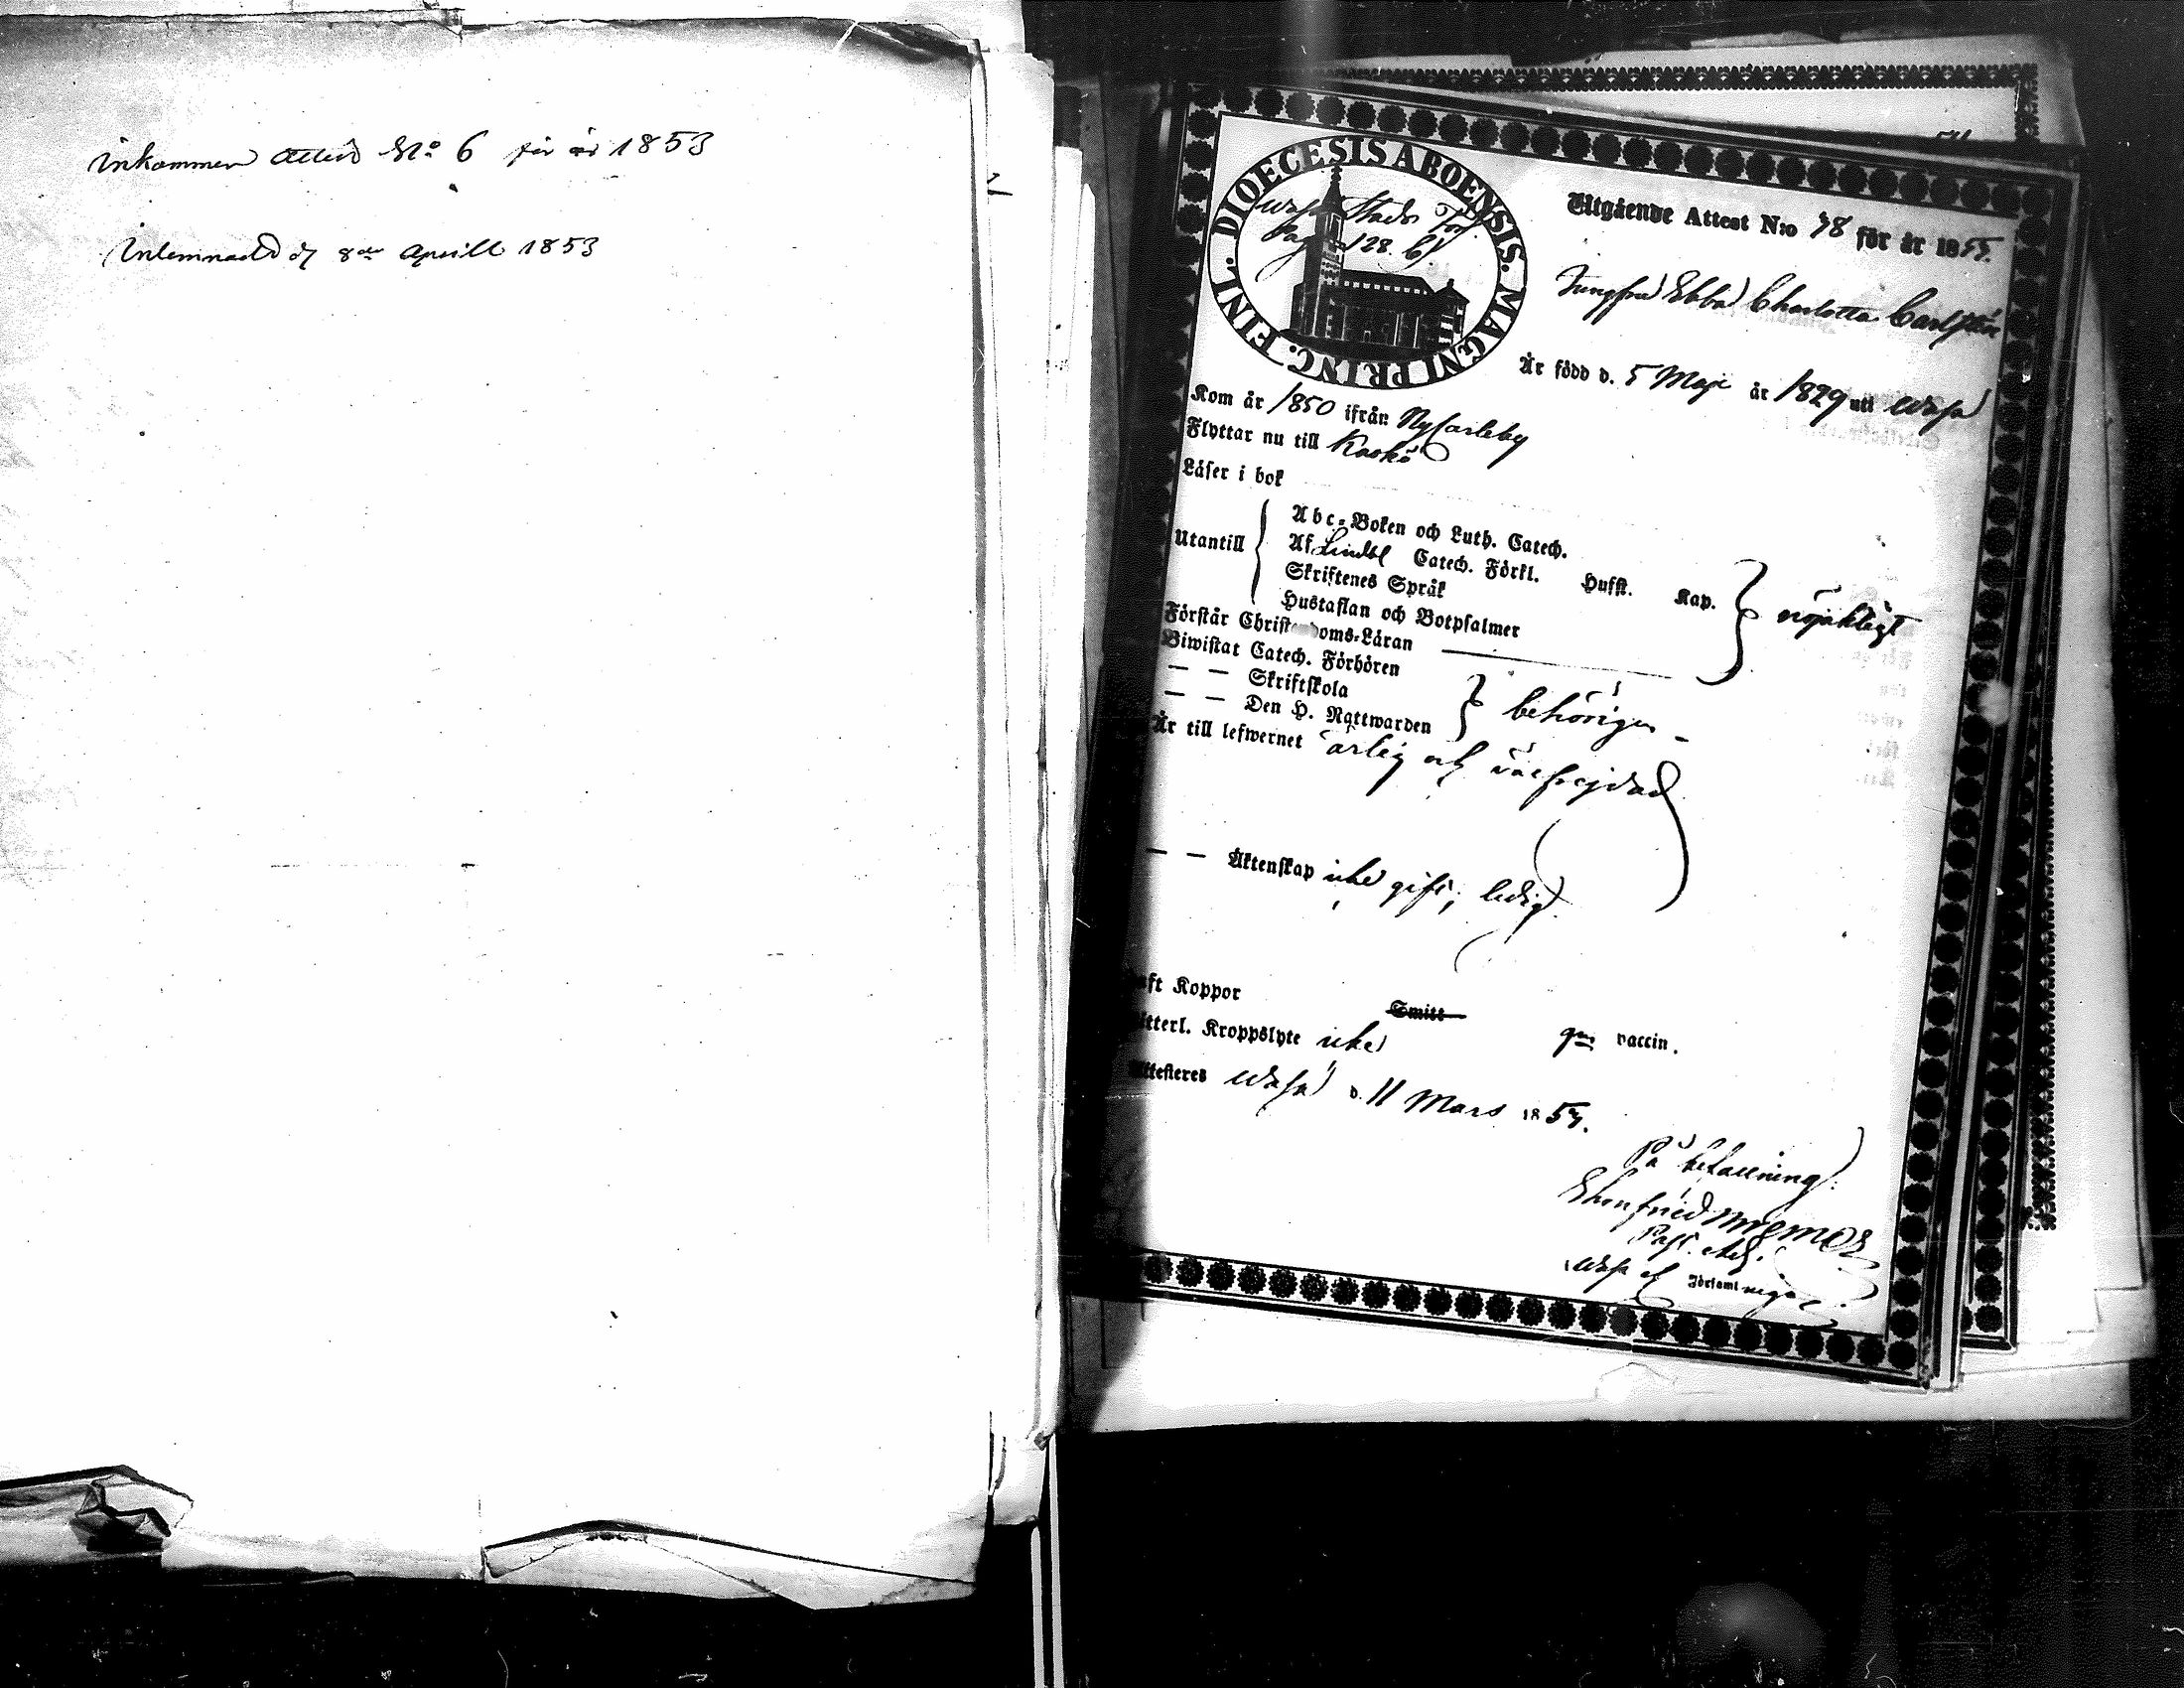 Inkommen Attest No 6 för år 1853
Inlemnad d 8de Aprill 1853
DIOECESIS ABOENSIS. MAGNI PRINC. FINL.
Wasa Stads Förs
Pag 128. b)
Utgående Attest N:o 78 för år 1855.
Jungfru Ebba Charlotta Carlsten
Är född d. 5 Maji år 1829 uti Wasa
Kom år 1850 ifrån Nycarleby
Flyttar nu till Kaskö
Läser i bok
Utantill
Abc-Boken och Luth. Catech.
Af Lindbl Catech. Förkl. Hufst. Kap.
Skriftenes Språk
Hustaflan och Botpsalmer
nöjaktigt
Förstår Christendoms-Läran
Biwistat Catech. Förhören
— — Skriftskola
— — Den H. Nattwarden
behörigen
Är till lefwernet ärlig och välfrejdad
— — Äktenskap icke gift; ledig
aft Koppor Smitt gm vaccin.
tterl. Kroppslyte icke
Attesteres Wasa d. 11 Mars 185
På befallning:
Ehrnfried
Past. Adj.
Wasa Församlingar